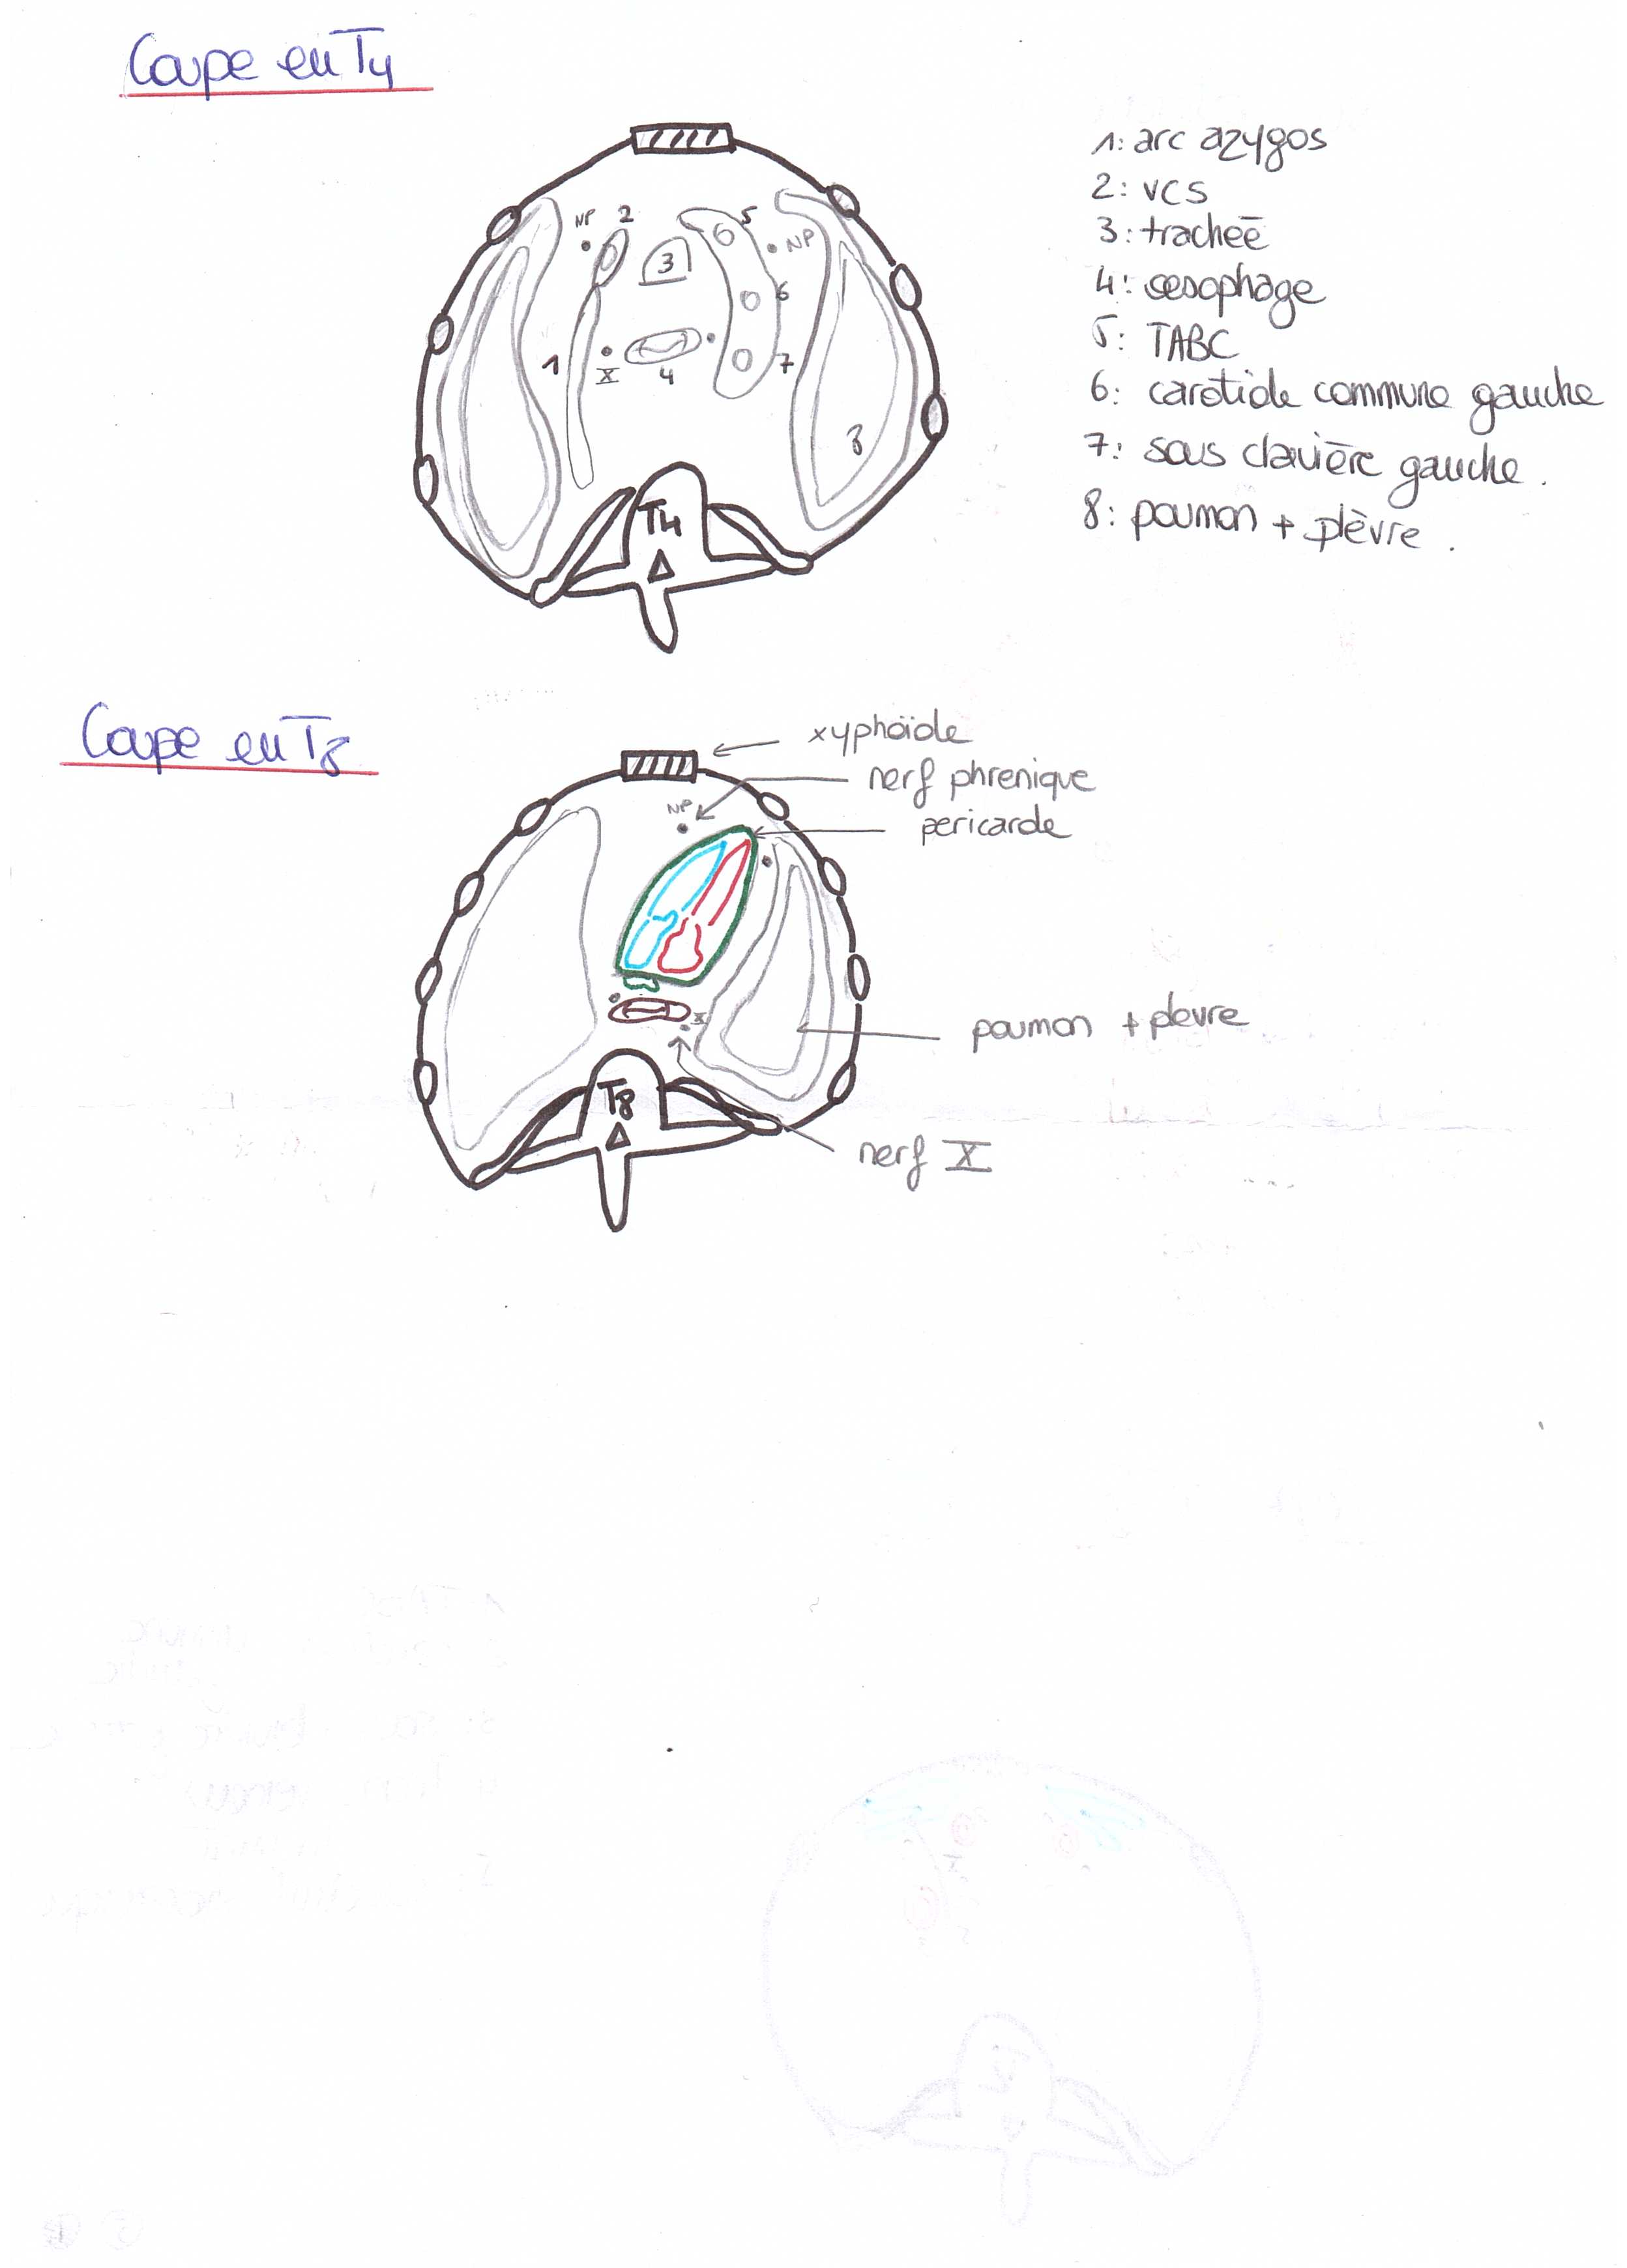 Coupe en T4
1: arc azygos
2: VCS
3: trachée
4: oesophage
5: TABC
6: carotide commune gauche
7: sous clavière gauche.
8: poumon + plèvre.
NP 2 5
3 NP
6
1 X 4 7
8
T4
Coupe en T8
xyphoïde
nerf phrenique
pericarde
NP
X
poumon + plevre
T8
nerf X